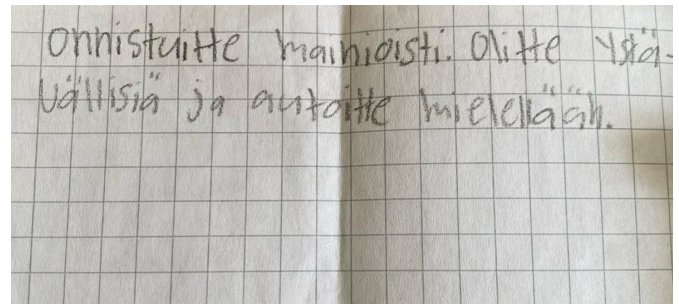 Onnistuitte mainioisti. Olitte ystä-
vällisiä ja autoitte mielellään.